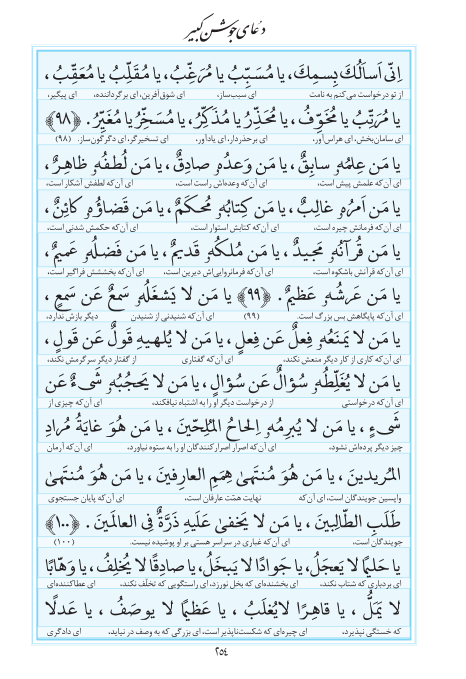 دعای جوشن کبیر
اِنّی اَسأَلُكَ بِاسمِكَ، یا مُسَبِّبُ یا مُرَغِّبُ، یا مُقَلِّبُ یا مُعَقِّبُ،
از تو درخواست می‌کنم به نامت ای سبب‌ساز، ای شوق‌آفرین، ای برگرداننده، ای پیگیر،
یا مُرَتِّبُ یا مُخَوِّفُ، یا مُحَذِّرُ یا مُذَکِّرُ، یا مُسَخِّرُ یا مُغَیِّرُ. ﴿٩٨﴾
ای سامان‌بخش، ای هراس‌آور، ای برحذردار، ای یادآور، ای تسخیرگر، ای دگرگون‌ساز. (٩٨)
یا مَن عِلمُهو سابِقٌ، یا مَن وَعدُهو صادِقٌ، یا مَن لُطفُهو ظاهِرٌ،
ای آن‌که علمش پیش است، ای آن‌که وعده‌اش راست است، ای آن‌که لطفش آشکار است،
یا مَن اَمرُهو غالِبٌ، یا مَن کِتابُهو مُحکَمٌ، یا مَن قَضاؤُهو کائِنٌ،
ای آن‌که فرمانش چیره است، ای آن‌که کتابش استوار است، ای آن‌که حکمش شدنی است،
یا مَن قُرآنُهو مَجیدٌ، یا مَن مُلکُهو قَدیمٌ، یا مَن فَضلُهو عَمیمٌ،
ای آن‌که قرآنش باشکوه است، ای آن‌که فرمانروایی‌اش دیرین است، ای آن‌که بخششش فراگیر است،
یا مَن عَرشُهو عَظیمٌ. ﴿٩٩﴾ یا مَن لا یَشغَلُهو سَمعٌ عَن سَمعٍ،
ای آن‌که پایگاهش بس بزرگ است. (٩٩) ای آن‌که شنیدنی از شنیدن دیگر بازش ندارد،
یا مَن لا یَمنَعُهو فِعلٌ عَن فِعلٍ، یا مَن لا یُلهیهِ قَولٌ عَن قَولٍ،
ای آن‌که کاری از کار دیگر منعش نکند، ای آن‌که گفتاری از گفتار دیگر سرگرمش نکند،
یا مَن لا یُغَلِّطُهو سُؤالٌ عَن سُؤالٍ، یا مَن لا یَحجُبُهو شَیءٌ عَن
ای آن‌که درخواستی از درخواست دیگر او را به اشتباه نیافکند، ای آن‌که چیزی از
شَیءٍ، یا مَن لا یُبرِمُهو اِلحاحُ المُلِحّینَ، یا مَن هُوَ غایَةُ مُرادِ
چیز دیگر پرده‌اش نشود، ای آن‌که اصرار اصرارکنندگان او را به ستوه نیاورد، ای آن‌که آرمان
المُریدینَ، یا مَن هُوَ مُنتَهیٰ هِمَمِ العارِفینَ، یا مَن هُوَ مُنتَهیٰ
واپسین جویندگان است، ای آن‌که نهایت همّت عارفان است، ای آن‌که پایان جستجوی
طَلَبِ الطّالِبینَ، یا مَن لا یَخفیٰ عَلَیهِ ذَرَّةٌ فِی العالَمینَ. ﴿١٠٠﴾
جویندگان است، ای آن‌که غباری در سراسر هستی بر او پوشیده نیست. (١٠٠)
یا حَلیمًا لا یَعجَلُ، یا جَوادًا لا یَبخَلُ، یا صادِقًا لا یُخلِفُ، یا وَهّابًا
ای بردباری که شتاب نکند، ای بخشنده‌ای که بخل نورزد، ای راستگویی که تخلّف نکند، ای عطاکننده‌ای
لا یَمَلُّ، یا قاهِرًا لایُغلَبُ، یا عَظیمًا لا یوصَفُ، یا عَدلًا
که خستگی نپذیرد، ای چیره‌ای که شکست‌ناپذیر است، ای بزرگی که به وصف در نیاید، ای دادگری
٢٥٤